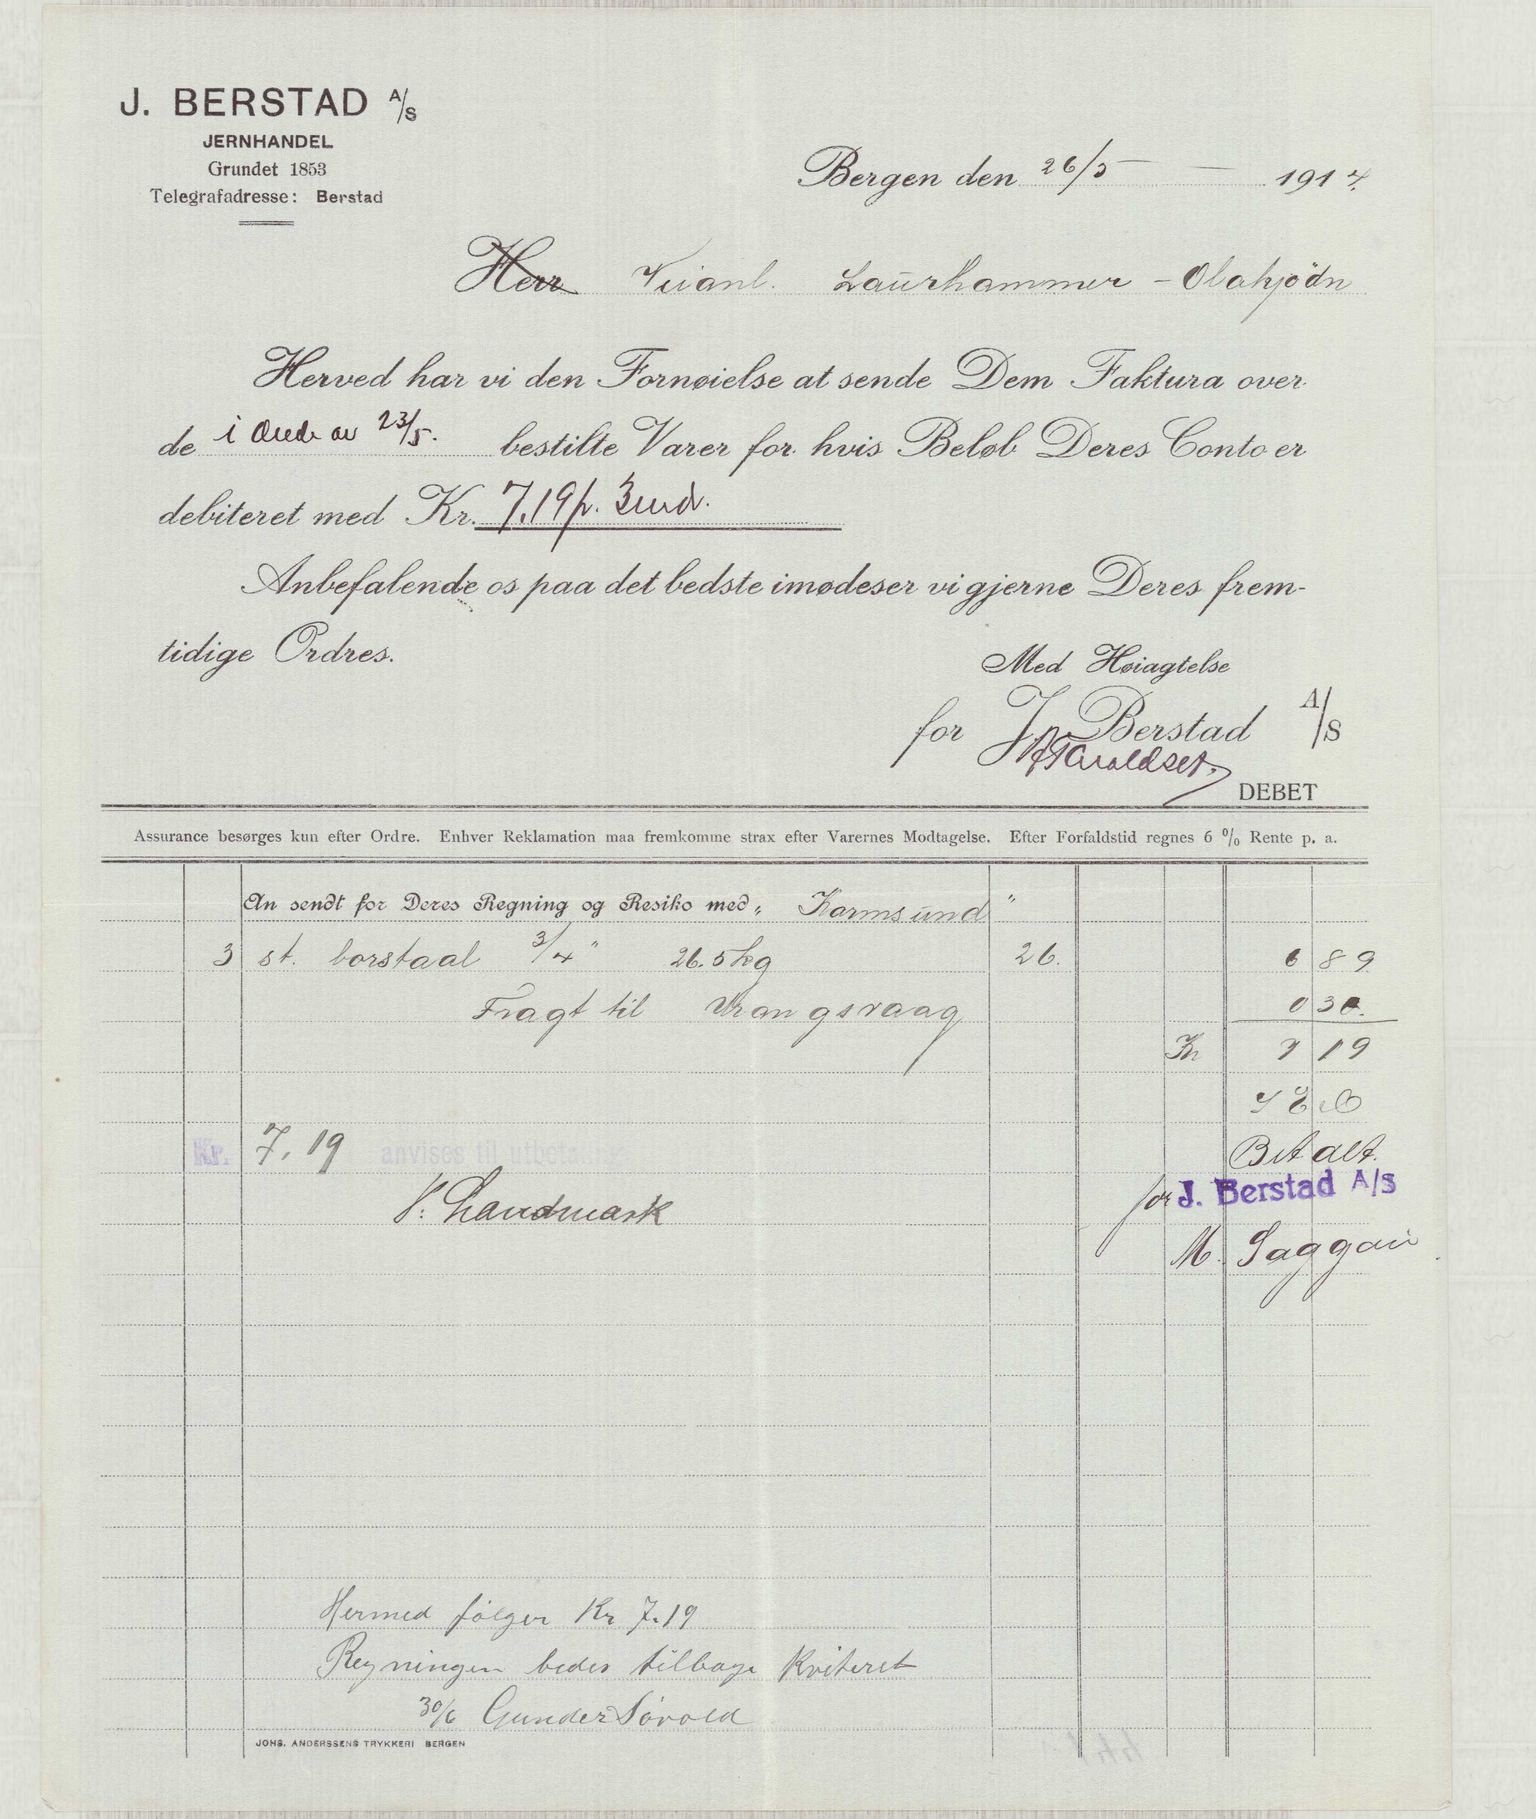 J. BERSTAD A/S
JERNHANDEL
Grundet 1853
Telegrafadresse: Berstad
Bergen den 26/5 1914.
Herr Veianl. Laurhammer - Olahjödn
Herved har vi den Fornøielse at sende Dem Faktura over
de i Ordre av 23/5. bestilte Varer for hvis Beløb Deres Conto er
debiteret med Kr. 7.19 p. 3 md.
Anbefalende os paa det bedste imødeser vi gjerne Deres frem-
tidige Ordres.
Med Høiagtelse
for J. Berstad A/S
DEBET
Assurance besørges kun efter Ordre. Enhver Reklamation maa fremkomme strax efter Varernes Modtagelse. Efter Forfaldstid regnes 6 % Rente p. a.
An sendt for Deres Regning og Resiko med „ Karmsund "
3 st. borstaal 3/4" 26.5 kg 26. 6 89
Fragt til Vrangsvaag 0 30.
Kr 7 19
Betalt.
Kr. 7.19 anvises til utbet
for J. Berstad A/S
V. Landmark
M. Saggau
Hermed følger Kr 7.19
Regningen bedes tilbage kviteret
30/6 Gunder Sørvold
JOHS. ANDERSSENS TRYKKERI BERGEN